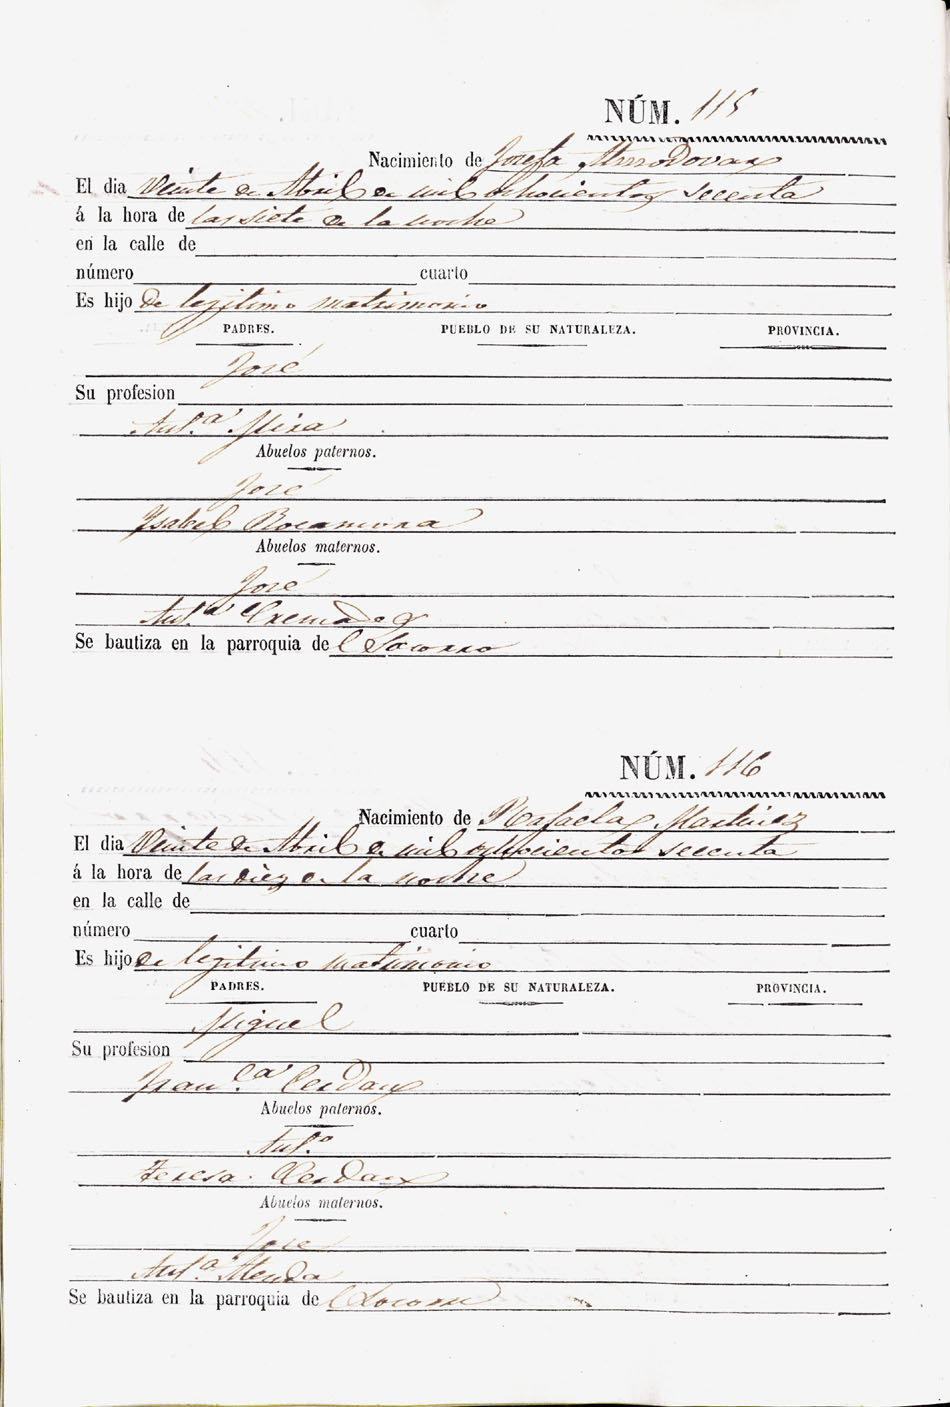 NÚM. 115
Nacimiento de Josefa Almodovar
El dia Veinte de Abril de mil ochocientos secenta
á la hora de las siete de la noche
en la calle de
número cuarto
Es hijo de legitimo matrimonio
PADRES. PUEBLO DE SU NATURALEZA. PROVINCIA.
José
Su profesion
Ant.ª Mira
Abuelos paternos.
José
Ysabel Rocamora
Abuelos maternos.
José
Ant.ª Cremades
Se bautiza en la parroquia de l Socorro
NÚM. 116
Nacimiento de Rafaela Martinez
El dia Veinte de Abril de mil ochocientos secenta
á la hora de las diez de la noche
en la calle de
número cuarto
Es hijo de legitimo matrimonio
PADRES. PUEBLO DE SU NATURALEZA. PROVINCIA.
Miguel
Su profesion
Fran.ca Cerdan
Abuelos paternos.
Ant.º
Teresa Cerdan
Abuelos maternos.
Jose
Ant.ª
Se bautiza en la parroquia de l Socorro